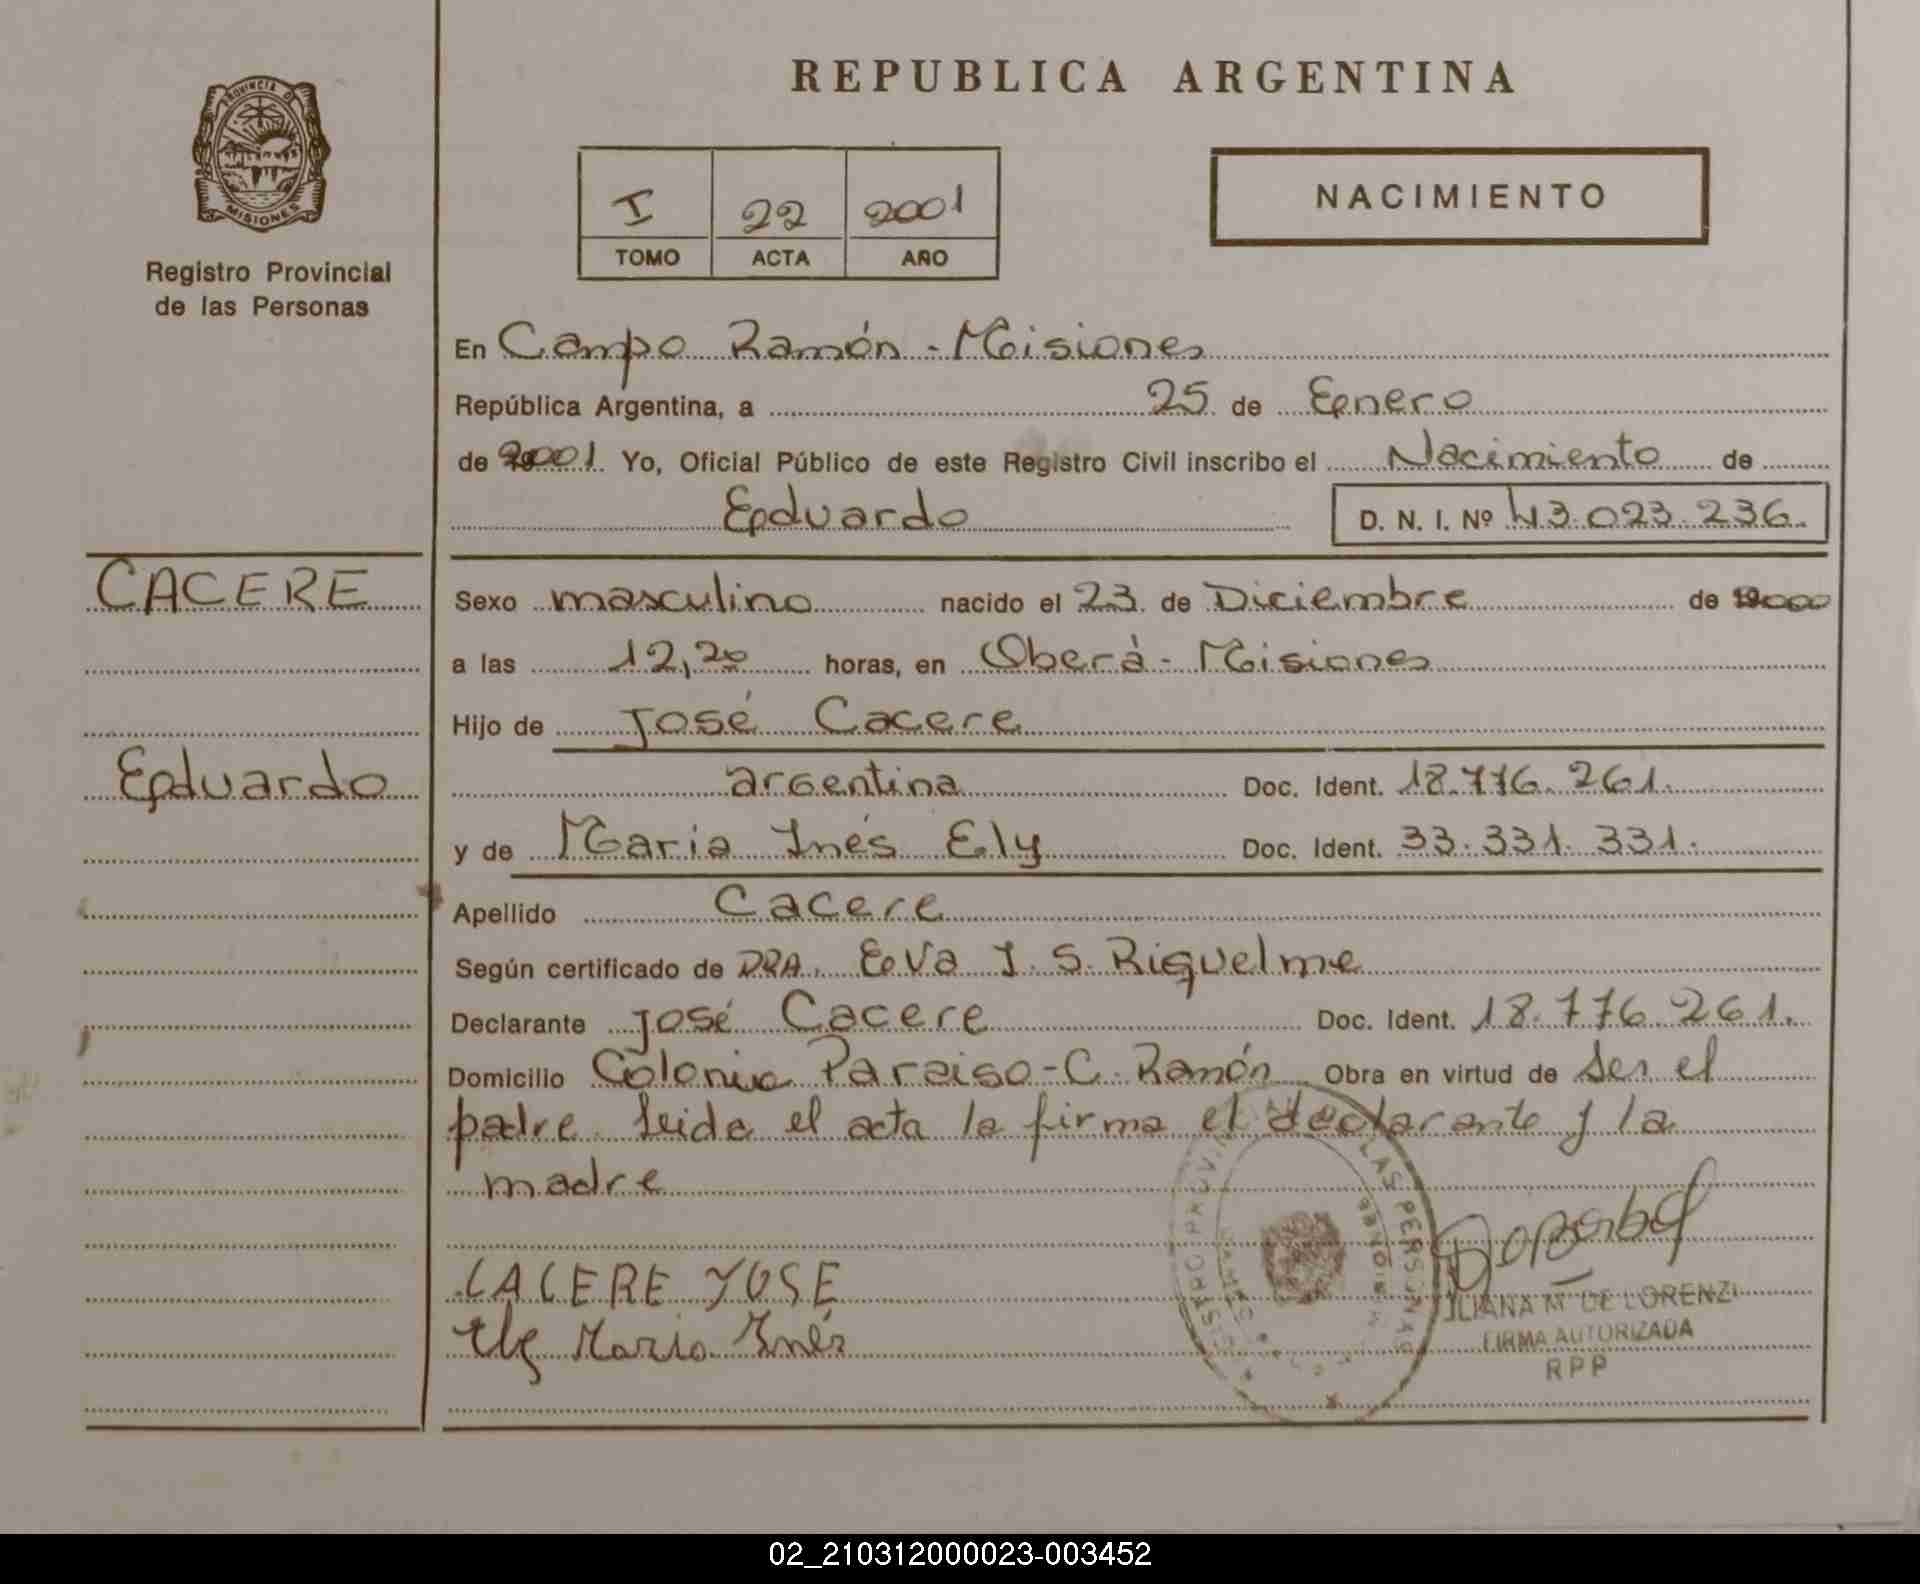 REPUBLICA ARGENTINA
PROVINCIA D
MISIONES
Registro Provincial
de las Personas
I 22 2001
TOMO ACTA AÑO
NACIMIENTO
En Campo Ramón - Misiones
República Argentina, a 25 de Enero
de 2001. Yo, Oficial Público de este Registro Civil inscribo el Nacimiento de
Eduardo D. N. I. Nº 43.023.236.
CACERE
Sexo masculino nacido el 23 de Diciembre de 2000
a las 12,20 horas, en Oberá - Misiones
Hijo de José Cacere
Eduardo
argentina Doc. Ident. 18.776.261.
y de Maria Inés Ely Doc. Ident. 33.331.331.
Apellido Cacere
Según certificado de DRA. Eva J. S. Riquelme
Declarante José Cacere Doc. Ident. 18.776.261.
Domicilio Colonia Paraiso - C. Ramón Obra en virtud de ser el
padre. Leida el acta la firma el declarante y la
madre
CACERE JOSE
Ely Maria Inés
LAS PERSONAS
MISIONES
LILIANA M. DE LORENZI
FIRMA AUTORIZADA
RPP
02_210312000023-003452